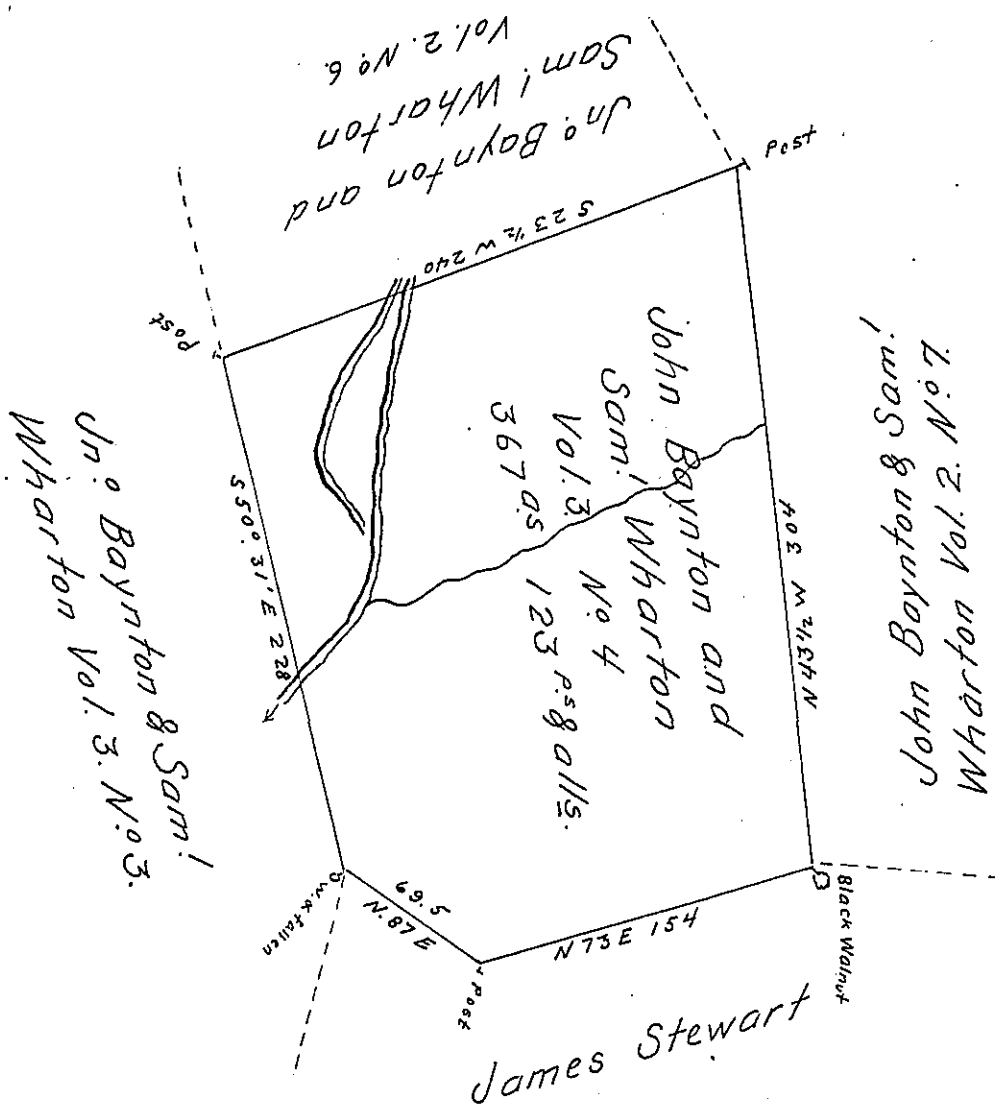 Jno. Baynton and
Saml Wharton
Vol. 2. No. 6.
Post
S 23 ½ W 240
Post
John Baynton and
Saml Wharton
Vol. 3. No. 4
367 as 123 ps & alls.
N 43 ½ W 304
John Baynton & Saml
Wharton Vol. 2. No. 7.
S 50° 31' E 228
Jno. Baynton & Saml
Wharton Vol. 3. No. 3.
N. 87 E
69.5
N 73 E 154
Post
Black Walnut
James Stewart